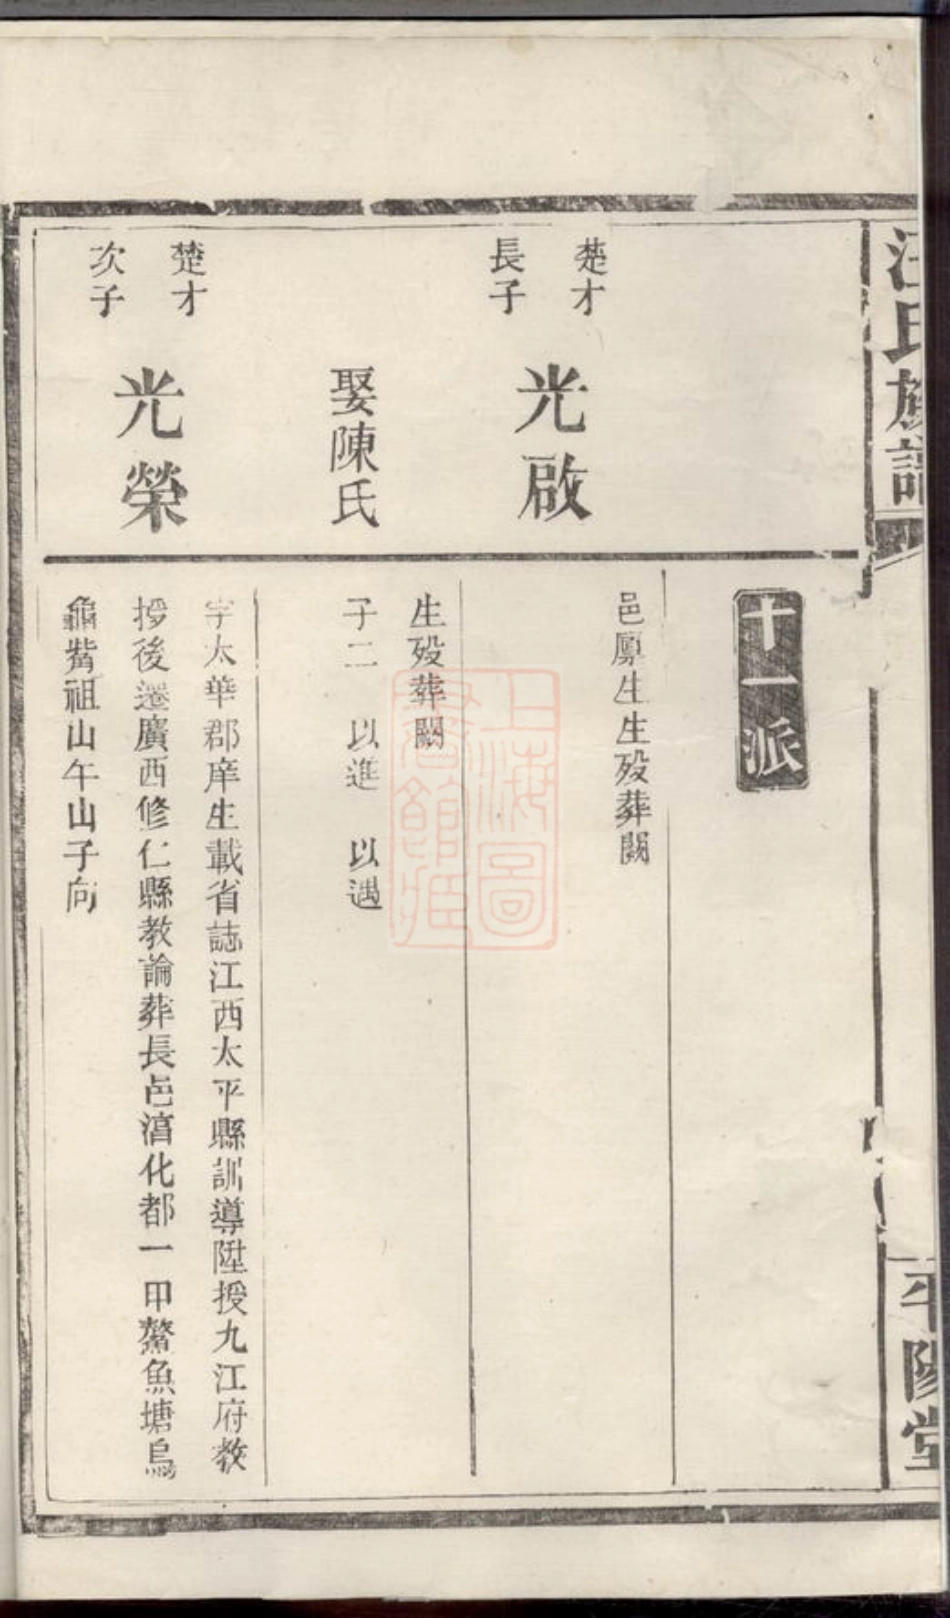 汪氏族譜
平陽堂
十一派
楚才
長子
光啟
邑廩生生歿葬闕
娶陳氏
生歿葬闕
子二 以進 以遇
楚才
次子
光榮
字太華郡庠生載省誌江西太平縣訓導陞授九江府教
授後遷廣西修仁縣教諭葬長邑淯化都一甲鰲魚塘烏
龜嘴祖山午山子向
上海圖
書館藏